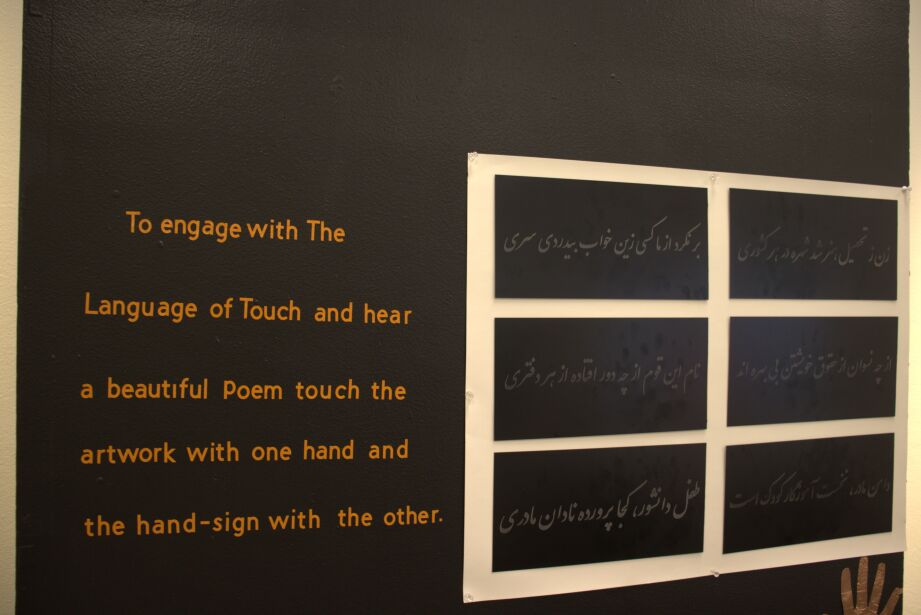 To engage with The
Language of Touch and hear
a beautiful poem touch the
artwork with one hand and
the hand-sign with the other.
زن ز تحصیل هنر شد شهره در هر کشوری
بر نکرد از ما کسی زین خواب بیدردی سری
از چه نسوان از حقوق خویشتن بی بهره اند
نام این قوم از چه دور افتاده از هر دفتری
دامن مادر، نخست آموزگار کودک است
طفل دانشور، کجا پرورده نادان مادری